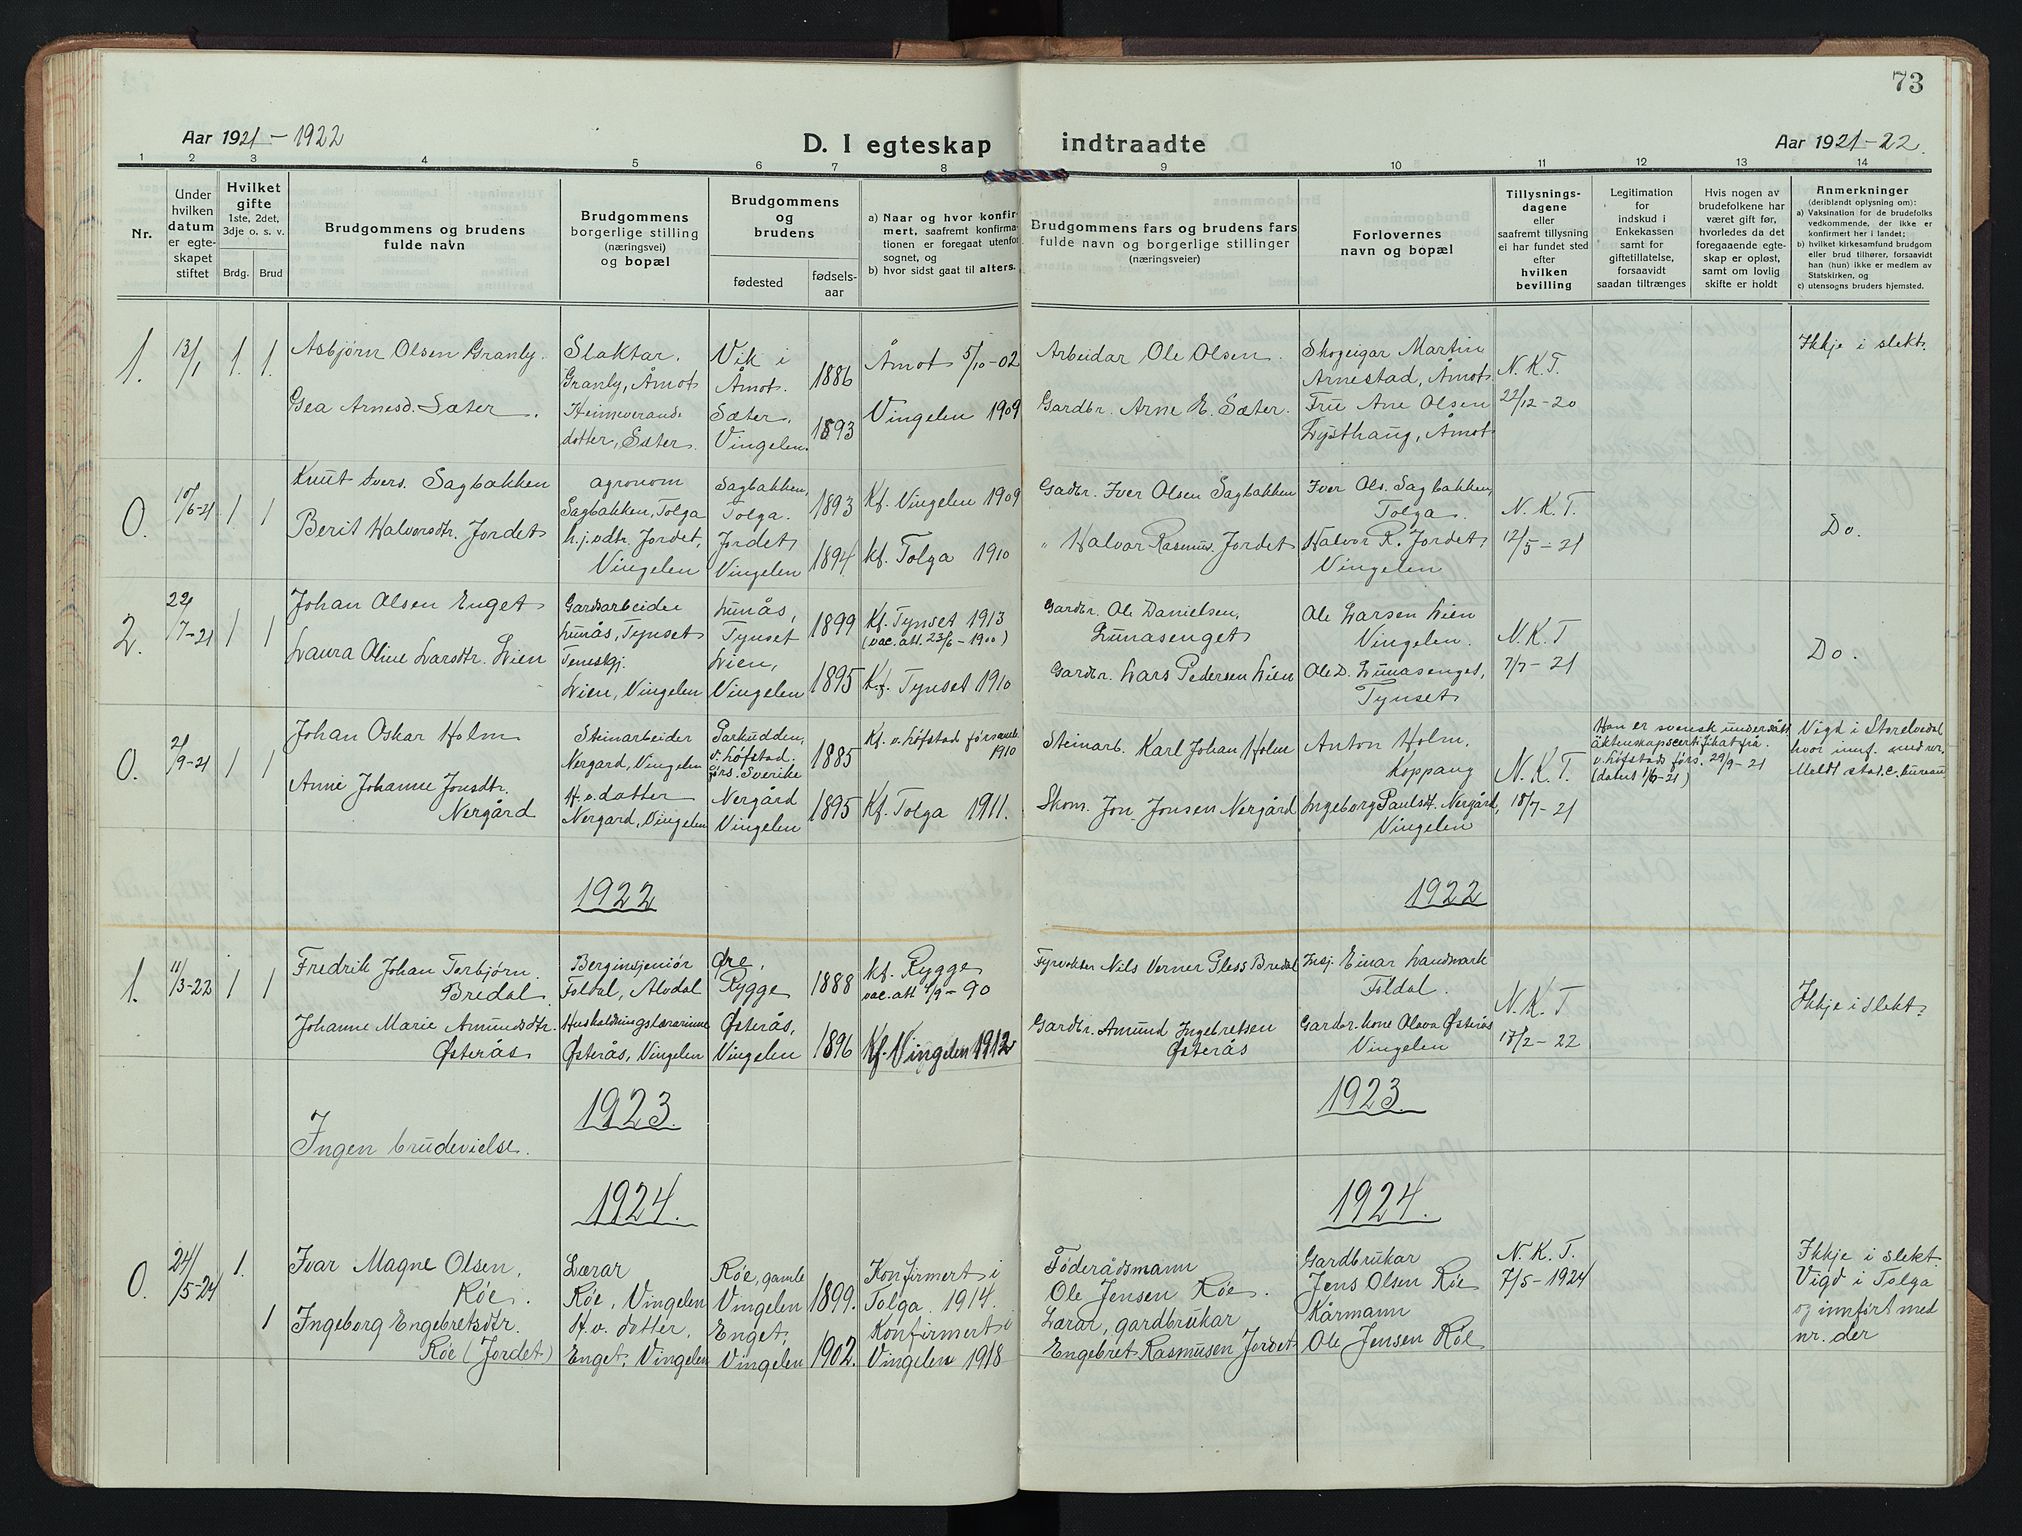 73
Aar 1921 - 1922
D. I egteskap indtraadte
Aar 1921-22.
1 2 3 4 5 6 7 8 9 10 11 12 13 14
Nr.
Under hvilken datum er egte-skapet stiftet
Hvilket gifte
1ste, 2det, 3dje o. s. v.
Brdg. Brud
Brudgommens og brudens fulde navn
Brudgommens borgerlige stilling (næringsvei) og bopæl
Brudgommens og brudens
fødested
fødsels-aar
a) Naar og hvor konfir-mert, saafremt konfirma-tionen er foregaat utenfor sognet, og
b) hvor sidst gaat til alters.
Brudgommens fars og brudens fars fulde navn og borgerlige stillinger (næringsveier)
Forlovernes navn og bopæl
Tillysnings-dagene eller saafremt tillysning ei har fundet sted efter hvilken bevilling
Legitimation for indskud i Enkekassen samt for giftetillatelse, forsaavidt saadan tiltrænges
Hvis nogen av brudefolkene har været gift før, hvorledes da det foregaaende egte-skap er opløst, samt om lovlig skifte er holdt
Anmerkninger (deriblandt oplysning om):
a) Vaksination for de brudefolks vedkommende, der ikke er konfirmert her i landet;
b) hvilket kirkesamfund brudgom eller brud tilhører, forsaavidt han (hun) ikke er medlem av Statskirken, og
c) utensogns bruders hjemsted.
1. 13/1 1. 1.
Asbjørn Olsen Granly.
Slaktar.
Granly, Åmot
Vik i
Åmot.
1886
Åmot 5/10-02
Arbeidar Ole Olsen.
Skogeigar Martin
Arnestad, Åmot
N. K. T.
22/12-20
Ikkje i slekt.
Gea Arnesd. Sæter.
Heimeverande
dotter, Sæter.
Sæter,
Vingelen.
1893
Vingelen 1909
Gardbr. Arne E. Sæter.
Fru Ane Olsen
Lysthaug, Åmot
0. 10/6-21 1 1
Knut Ivers. Sagbakken
agronom
Sagbakken, Tolga
Sagbakken,
Tolga.
1893
Kf. Vingelen 1909
Gadbr. Iver Olsen Sagbakken
Iver Ols. Sagbakken,
Tolga.
N. K. T.
12/5-21
Do.
Berit Halvorsdtr. Jordet
h.j.vdtr. Jordet,
Vingelen
Jordet
Vingelen
1894.
kf. Tolga 1910
" Halvor Rasmus. Jordet
Halvor R. Jordet
Vingelen
2. 22/7-21 1 1
Johan Olsen Enget
Gardsarbeider
Lunås, Tynset
Lunås,
Tynset
1899
Kf. Tynset 1913
(vac. att. 23/6-1900)
Gardbr. Ole Danielsen,
Lunasenget
Ole Larsen Lien
Vingelen.
N. K. T
7/7-21
Do.
Laura Oline Larsdtr. Lien
Teneskj.
Lien, Vingelen
Lien,
Vingelen
1895
Kf. Tynset 1910
Gardbr. Lars Pedersen Lien
Ole D. Lunasenget,
Tynset
0. 21/9-21 1 1
Johan Oskar Holm
Steinarbeider
Nergard, Vingelen
Parkudden,
v. Löfstad
förs. Sverike
1885
Kf. v. Löfstad församl.
1910
Steinarb. Karl Johan Holm
Anton Holm,
Koppang
N. K. T.
18/7-21
Han er svensk undersått
äktenskapscertifikat frå
v. Löfstads förs. 29/9-21
Vigd i Storelvedal
hvor innf. med nr.
Meldt stat. c. bureau
Anne Johanne Jonsdtr.
Nergård
H. v. dotter
Nergard, Vingelen
Nergård
Vingelen
1895
Kf. Tolga 1911.
Skom. Jon Jonsen Nergård
Ingeborg Paulsdt. Nergård,
Vingelen
1922 1922
1. 11/3-22 1 1
Fredrik Johan Torbjørn.
Bredal
Berginsjeniør
Foldal, Alvdal
Øre,
Rygge
1888
kf. Rygge
vac. att. 1/9-90
Fyrvokter Nils Verner Pless Bredal
Insj. Einar Landmark
Foldal.
N. K. T
17/2-22
Ikkje i slekt.
Johanne Marie Amundsdtr.
Østerås
Husholdningslærarinne
Østerås, Vingelen
Østerås,
Vingelen
1896
Kf. Vingelen 1912
Gardbr. Amund Ingebretsen
Østerås
Gardbr. kone Olava Østerås
Vingelen
1923. 1923.
Ingen brudevielse.
1924. 1924.
0. 24/5-24 1.
Ivar Magne Olsen.
Røe.
Lærar
Røe, Vingelen
Røe, gamle
Vingelen
1899.
Konfirmert i
Tolga. 1914.
Føderådsmann
Ole Jensen Røe.
Gardbrukar
Jens Olsen Røe
N. K. T.
7/5-1924
Ikkje i slekt.
Vigd i Tolga
og innført med
nr. der
1
Ingeborg Engebretsdtr.
Røe (Jordet)
H. v. dotter.
Enget, Vingelen
Enget,
Vingelen
1902.
Konfirmert i
Vingelen 1918
Lærar, gardbrukar
Engebret Rasmusen Jordet
Kårmann
Ole Jensen Røe